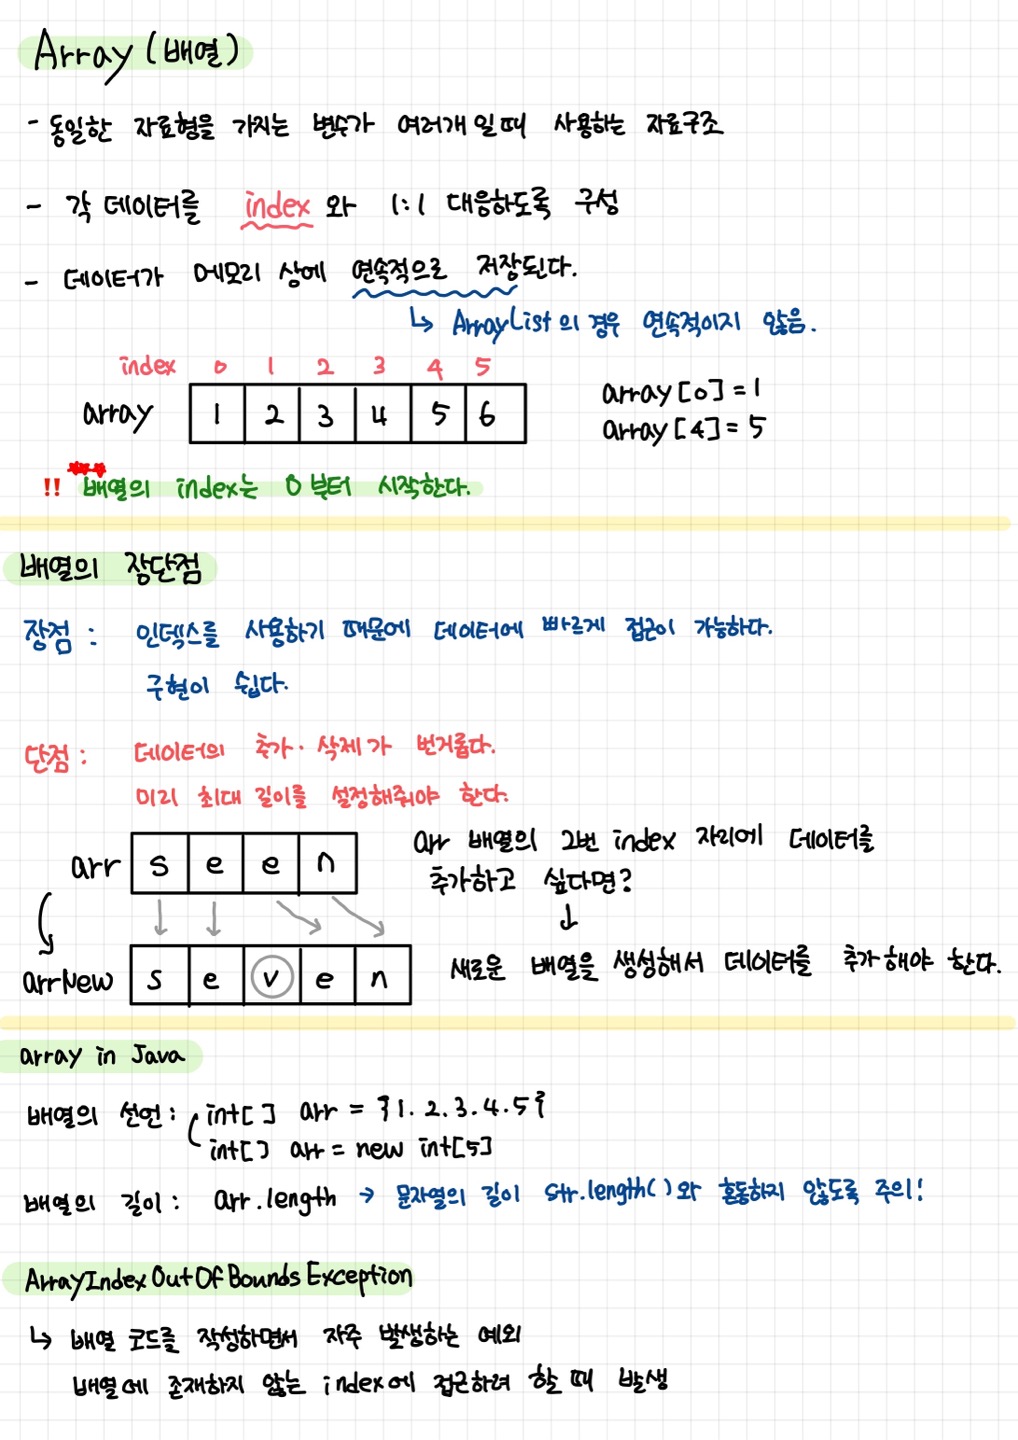 Array (배열)
- 동일한 자료형을 가지는 변수가 여러개일때 사용하는 자료구조
- 각 데이터를 index 와 1:1 대응하도록 구성
- 데이터가 메모리 상에 연속적으로 저장된다.
↳ ArrayList의 경우 연속적이지 않음.
index 0 1 2 3 4 5
array 1 2 3 4 5 6
array[0] = 1
array[4] = 5
!! 배열의 index는 0부터 시작한다.
배열의 장단점
장점 : 인덱스를 사용하기 때문에 데이터에 빠르게 접근이 가능하다.
구현이 쉽다.
단점 : 데이터의 추가·삭제가 번거롭다.
미리 최대 길이를 설정해줘야 한다.
arr s e e n
arr 배열의 2번 index 자리에 데이터를
추가하고 싶다면?
↓
arrNew s e v e n
새로운 배열을 생성해서 데이터를 추가해야 한다.
array in Java
배열의 선언 : int[] arr = {1.2.3.4.5}
int[] arr = new int[5]
배열의 길이 : arr.length → 문자열의 길이 str.length()와 혼동하지 않도록 주의!
ArrayIndexOutOfBoundsException
↳ 배열 코드를 작성하면서 자주 발생하는 예외
배열에 존재하지 않는 index에 접근하려 할 때 발생